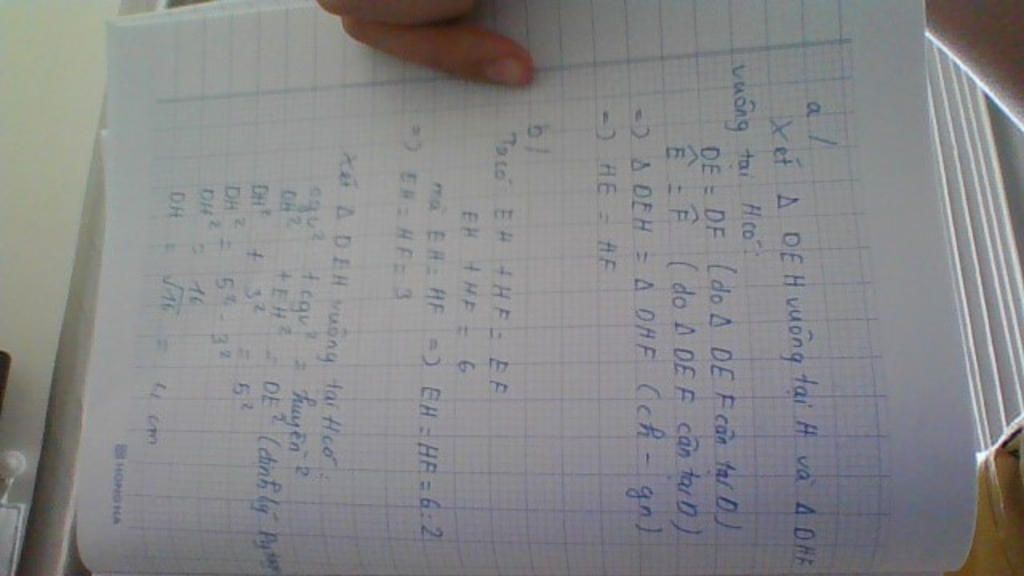 a/
Xét Δ DEH vuông tại H và Δ DHF
vuông tại H có:
DE = DF (do Δ DEF cân tại D)
Ê = F̂ (do Δ DEF cân tại D)
=> Δ DEH = Δ DHF (ch - gn)
=> HE = HF
b/
Ta có EH + HF = EF
EH + HF = 6
mà EH = HF => EH = HF = 6:2
=> EH = HF = 3
Xét Δ DEH vuông tại H có:
cgv² + cgv² = huyền²
DH² + EH² = DE² (định lý Pytago
DH² + 3² = 5²
DH² = 5² - 3²
DH² = 16
DH = √16 = 4 cm
HONGHA